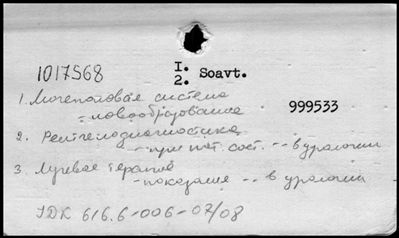 1017568
I. Soavt.
2.
999533
1. Мочеполовая система
- новообразования
2. Рентгенодиагностика
- при пат. сост. -- в урологии
3. Лучевая терапия
- показания -- в урологии
УДК 616.6-006-07/08